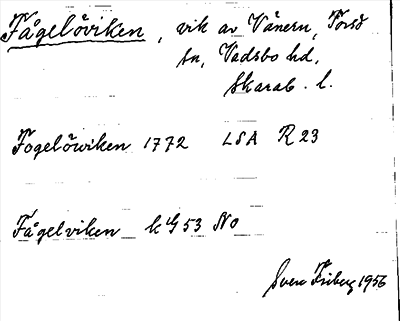 Fågelöviken, vik av Vänern, Torsö
sn, Vadsbo hd,
Skarab. l.
Fogelöwiken 1772 LSA R 23
Fågelviken kG 53 NO
Sven Friberg 1956